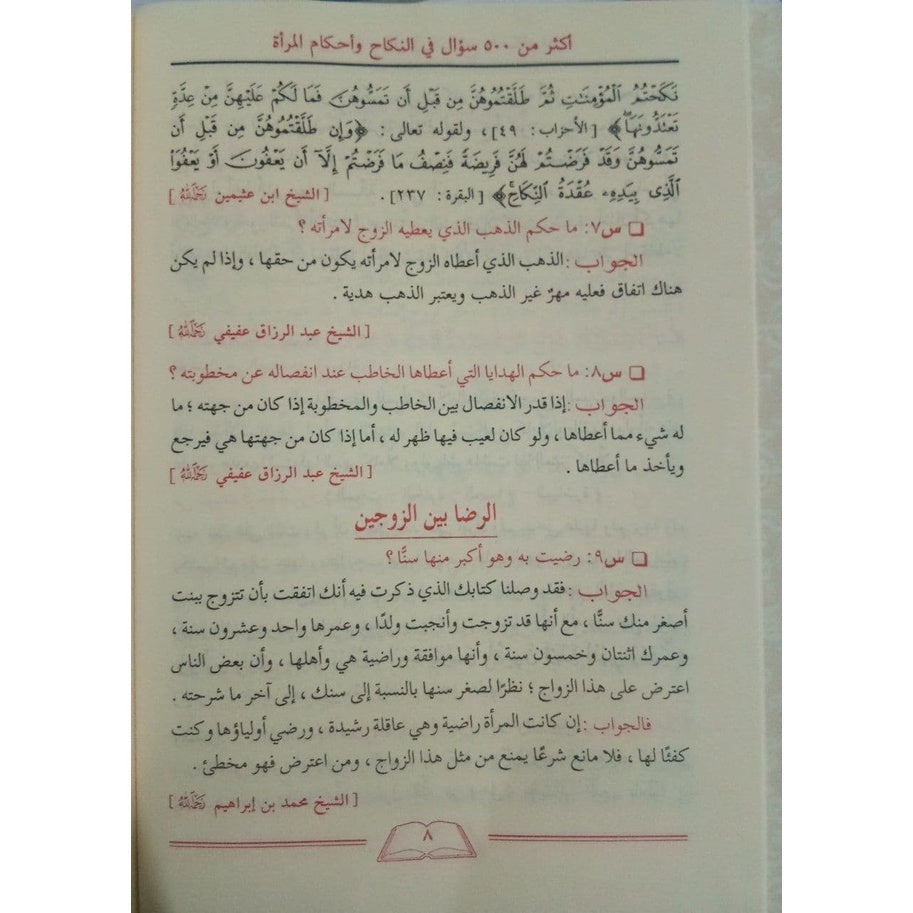 أكثر من ٥٠٠ سؤال في النكاح وأحكام المرأة
نَكَحْتُمُ الْمُؤْمِنَاتِ ثُمَّ طَلَّقْتُمُوهُنَّ مِن قَبْلِ أَن تَمَسُّوهُنَّ فَمَا لَكُمْ عَلَيْهِنَّ مِنْ عِدَّةٍ
تَعْتَدُّونَهَا﴾ [الأحزاب : ٤٩] ، ولقوله تعالى : ﴿وَإِن طَلَّقْتُمُوهُنَّ مِن قَبْلِ أَن
تَمَسُّوهُنَّ وَقَدْ فَرَضْتُمْ لَهُنَّ فَرِيضَةً فَنِصْفُ مَا فَرَضْتُمْ إِلَّا أَن يَعْفُونَ أَوْ يَعْفُوَا
الَّذِي بِيَدِهِ عُقْدَةُ النِّكَاحِ﴾ [البقرة : ٢٣٧] . [الشيخ ابن عثيمين رَحِمَهُ اللَّهُ]
❑ س٧: ما حكم الذهب الذي يعطيه الزوج لامرأته ؟
الجواب : الذهب الذي أعطاه الزوج لامرأته يكون من حقها ، وإذا لم يكن
هناك اتفاق فعليه مهرٌ غير الذهب ويعتبر الذهب هدية .
[الشيخ عبد الرزاق عفيفي رَحِمَهُ اللَّهُ]
❑ س٨: ما حكم الهدايا التي أعطاها الخاطب عند انفصاله عن مخطوبته ؟
الجواب : إذا قدر الانفصال بين الخاطب والمخطوبة إذا كان من جهته ؛ ما
له شيء مما أعطاها ، ولو كان لعيب فيها ظهر له ، أما إذا كان من جهتها هي فيرجع
ويأخذ ما أعطاها . [الشيخ عبد الرزاق عفيفي رَحِمَهُ اللَّهُ]
الرضا بين الزوجين
❑ س٩: رضيت به وهو أكبر منها سنًّا ؟
الجواب : فقد وصلنا كتابك الذي ذكرت فيه أنك اتفقت بأن تتزوج ببنت
أصغر منك سنًّا ، مع أنها قد تزوجت وأنجبت ولدًا ، وعمرها واحد وعشرون سنة ،
وعمرك اثنتان وخمسون سنة ، وأنها موافقة وراضية هي وأهلها ، وأن بعض الناس
اعترض على هذا الزواج ؛ نظرًا لصغر سنها بالنسبة إلى سنك ، إلى آخر ما شرحته .
فالجواب : إن كانت المرأة راضية وهي عاقلة رشيدة ، ورضي أولياؤها وكنت
كفئًا لها ، فلا مانع شرعًا يمنع من مثل هذا الزواج ، ومن اعترض فهو مخطئ .
[الشيخ محمد بن إبراهيم رَحِمَهُ اللَّهُ]
٨